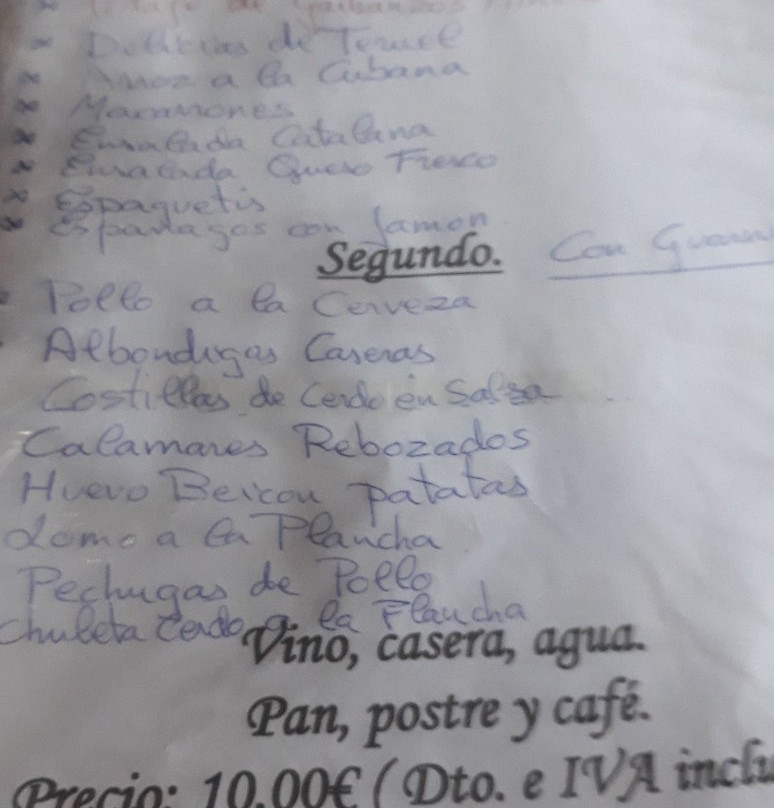 Potaje de Garbanzos
Delicias de Teruel
Arroz a la Cubana
Macarrones
Ensalada Catalana
Ensalada Queso Fresco
Espaguetis
Esparragos con Jamon
Segundo. Con
Pollo a la Cerveza
Albondigas Caseras
Costillas de Cerdo en Salsa
Calamares Rebozados
Huevo Beicon patatas
Lomo a la Plancha
Pechugas de Pollo
Chuleta Cerdo a la Plancha
Vino, casera, agua.
Pan, postre y café.
Precio: 10,00€ ( Dto. e IVA inclu